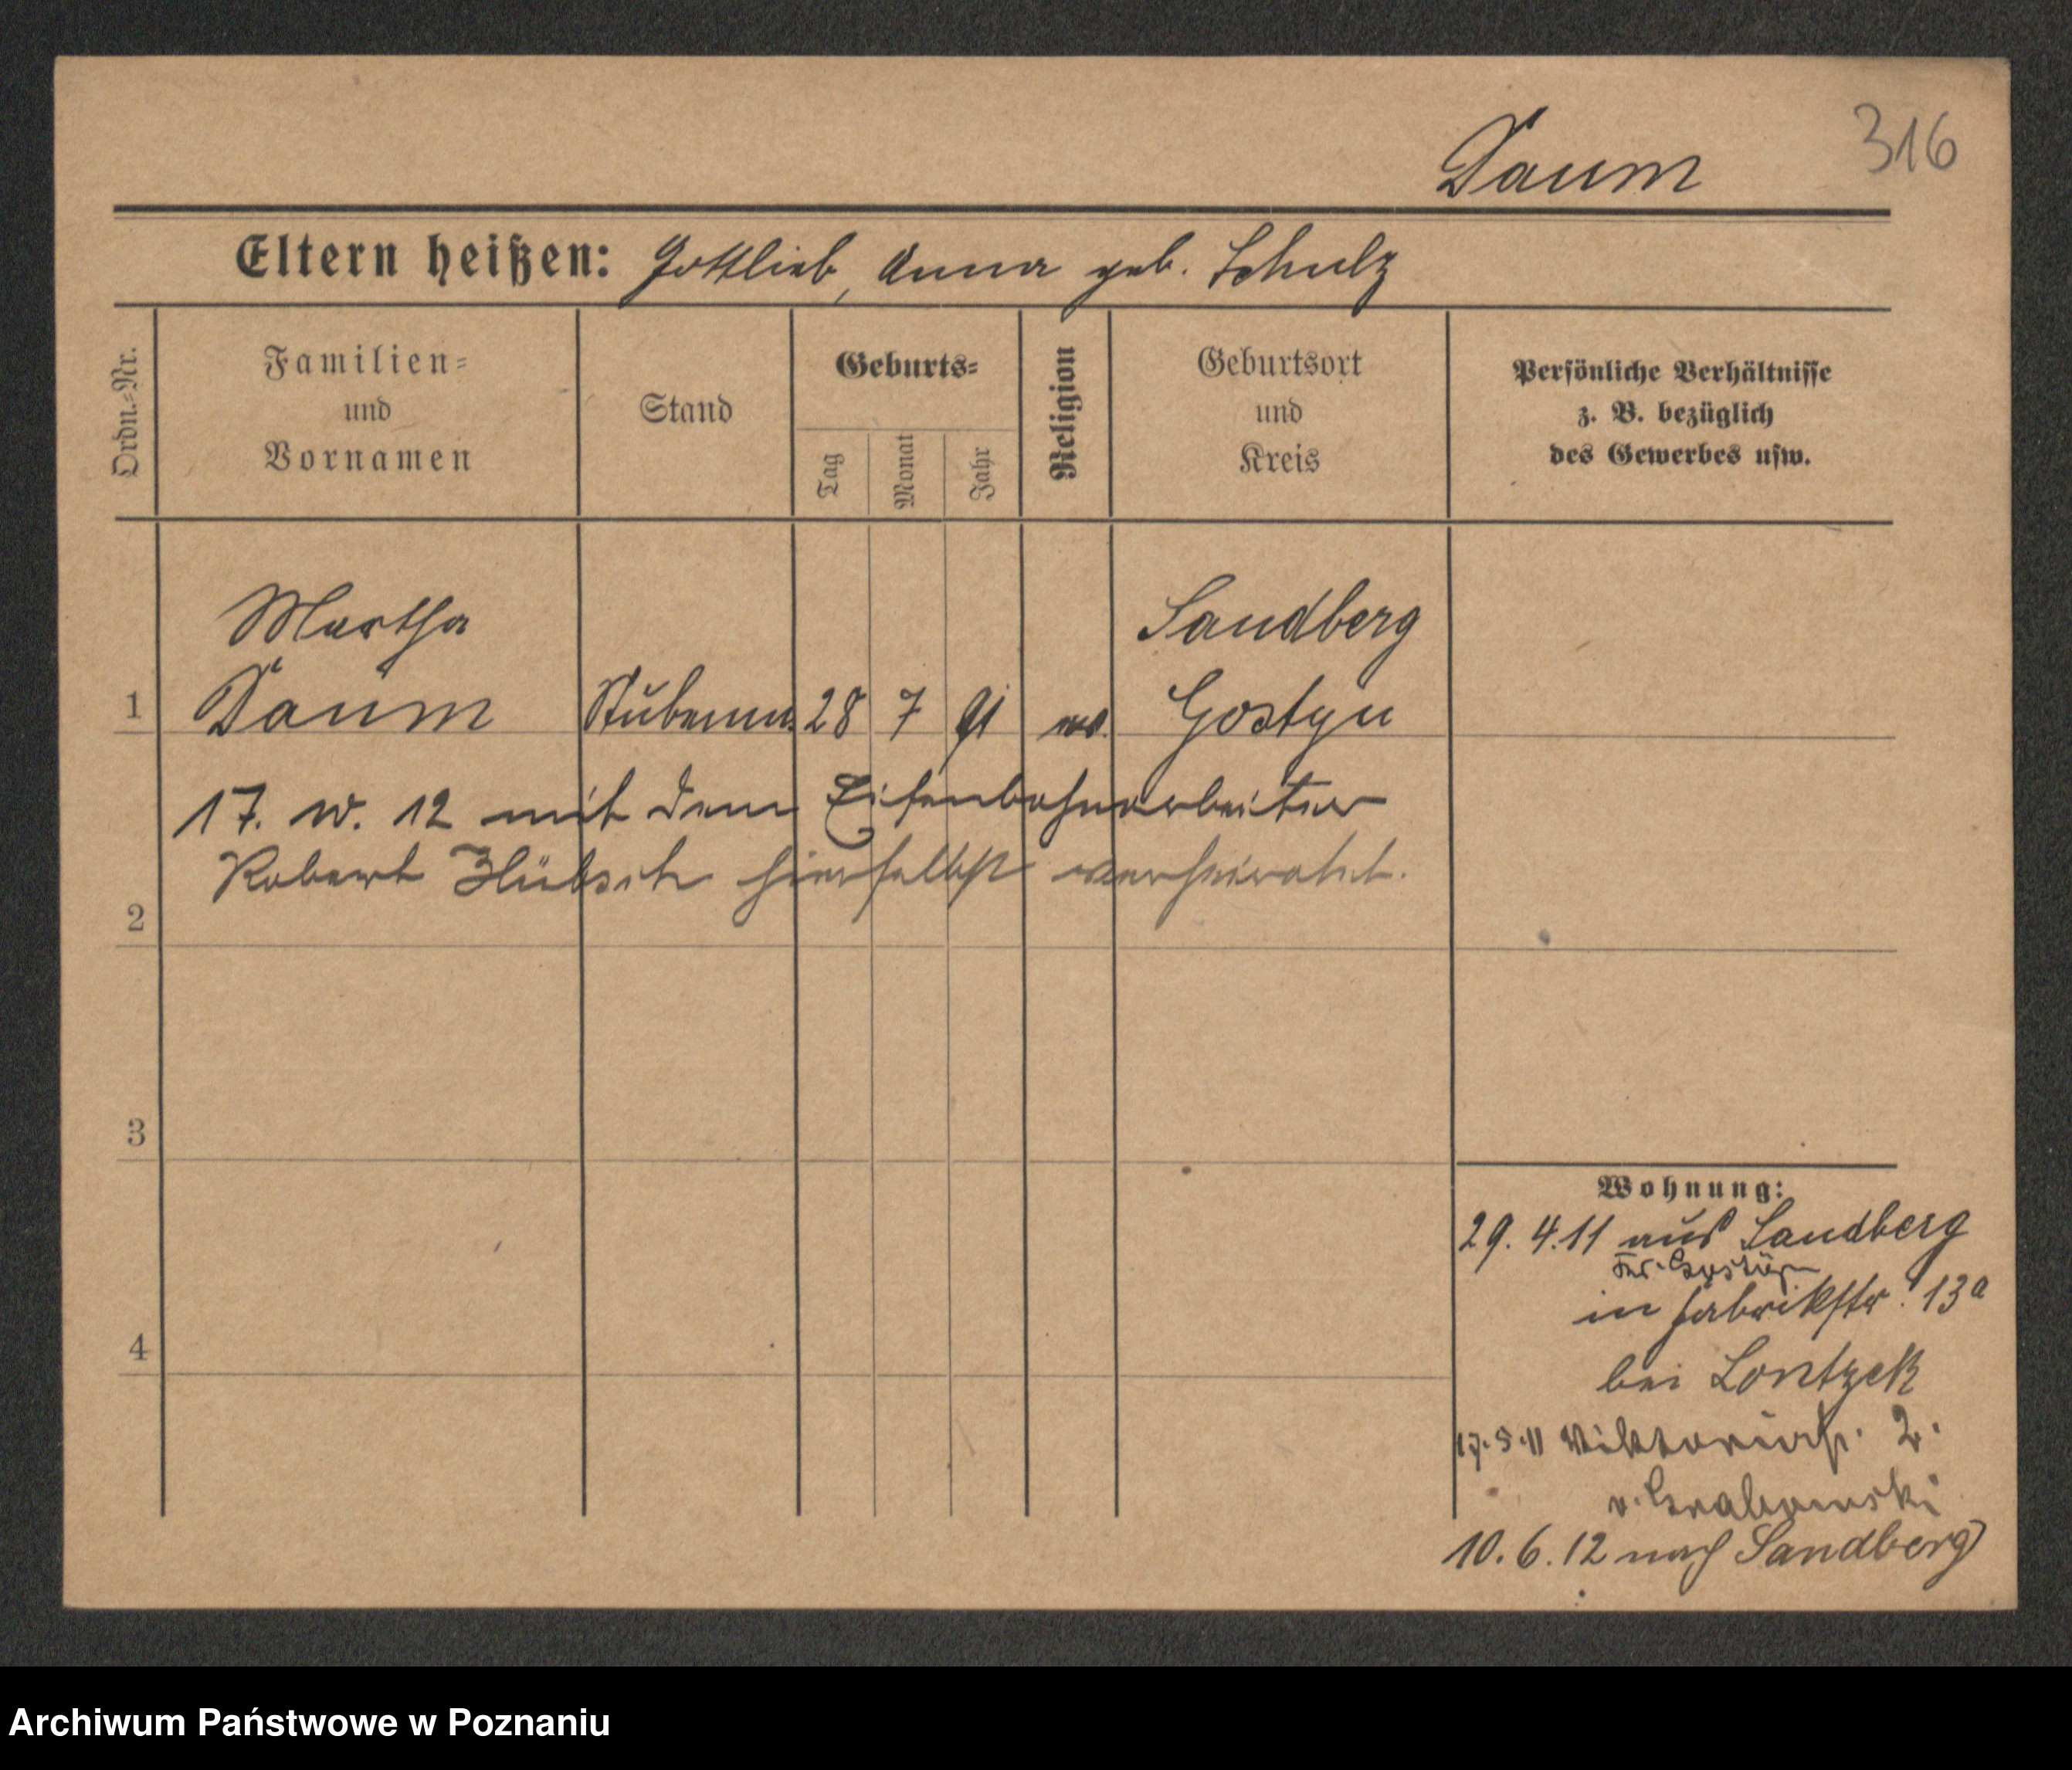 316
Daum
Eltern heißen: Gottlieb, Anna geb. Schulz
Ordn.-Nr.
Familien- und Vornamen
Stand
Geburts-
Tag
Monat
Jahr
Religion
Geburtsort und Kreis
Persönliche Verhältnisse
z. B. bezüglich
des Gewerbes usw.
Martha
Sandberg
1 Daum Stubenm. 28 7 91 Gostyn
17. IV. 12 mit dem Eisenbahnarbeiter
Robert Hübsch hierselbst verheiratet.
2
3
4
Wohnung:
29. 4. 11 aus Sandberg
Kr. Gostyn
in Fabrikstr. 13a
bei Lontzek
17. 5. 11 Viktoriastr. 2.
v. Grabowski
10. 6. 12 nach Sandberg
Archiwum Państwowe w Poznaniu